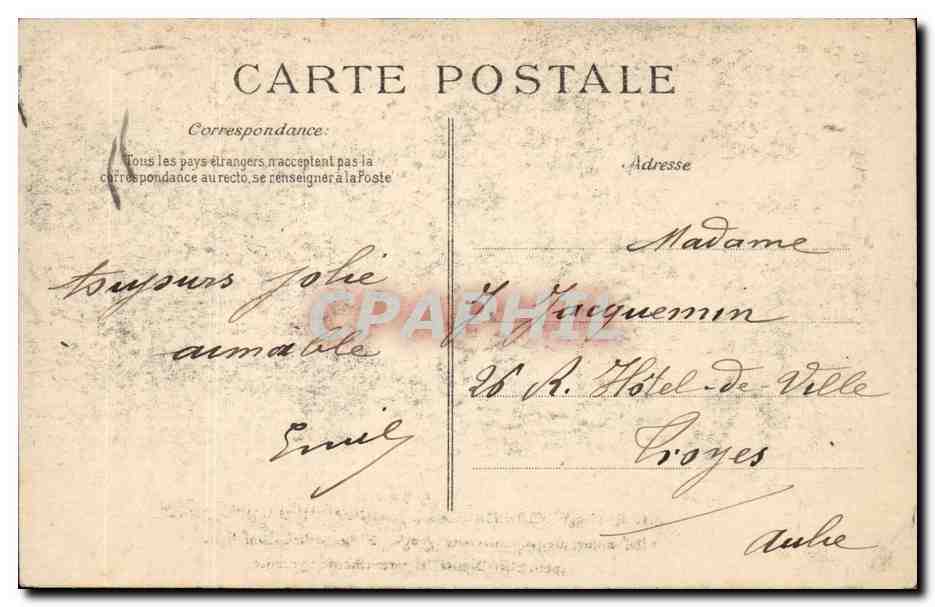 CARTE POSTALE
Correspondance:
Tous les pays étrangers n'acceptent pas la
correspondance au recto, se renseigner à la Poste
toujours jolie
aimable
Emile
Adresse
Madame
J. Jacquemin
26 R. Hôtel-de-Ville
Troyes
Aube
CPAPHIL